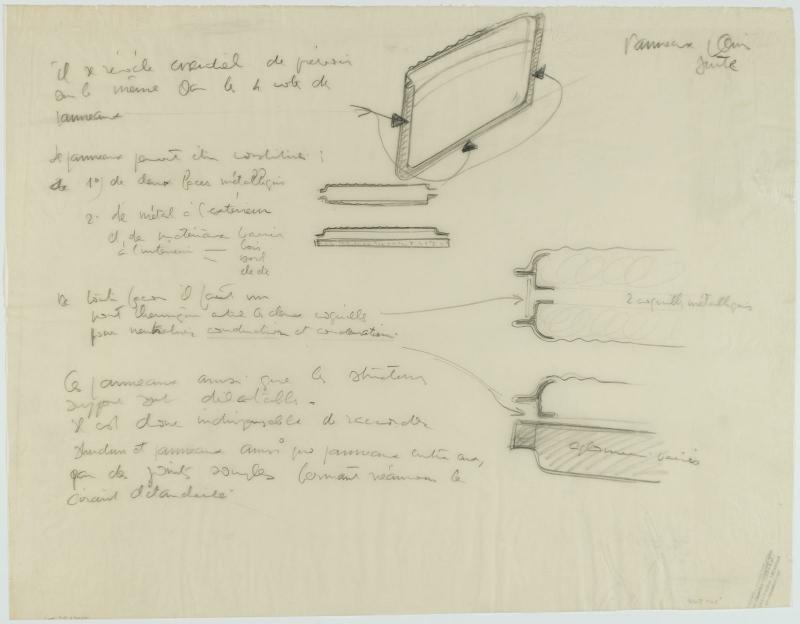 Panneaux Plein
Suite
Il se révèle crucial de prévoir
le même sur les 4 cotés des
panneaux
Les panneaux peuvent être constitués :
de 1°) de deux faces métalliques
2. de métal à l'extérieur
et de matériaux
à l'intérieur
bois
etc etc
De toute façon il faut un
pont thermique entre les deux coquilles
pour neutraliser conduction et condensation.
2 coquilles métalliques
Ces panneaux ainsi que les structures
support sont dilatables.
Il est donc indispensable de raccorder
structure et panneaux ainsi que panneaux entre eux,
par des joints souples formant néanmoins le
circuit d'étanchéité.